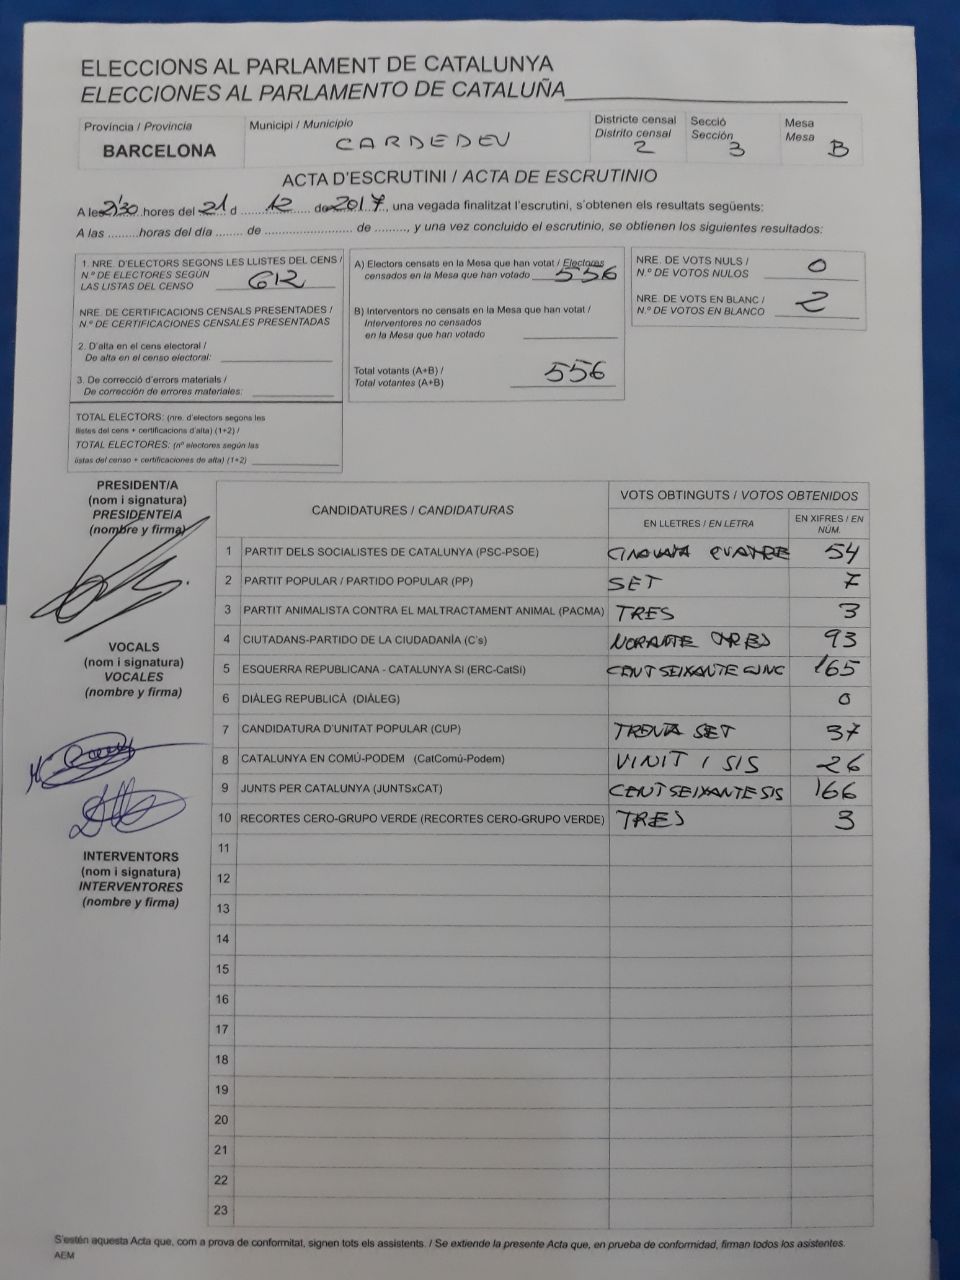 ELECCIONS AL PARLAMENT DE CATALUNYA
ELECCIONES AL PARLAMENTO DE CATALUÑA
Província / Provincia
BARCELONA
Municipi / Municipio
CARDEDEU
Districte censal
Distrito censal
2
Secció
Sección
3
Mesa
Mesa
B
ACTA D'ESCRUTINI / ACTA DE ESCRUTINIO
A les 2'30 hores del 21 d 12 de 2017, una vegada finalitzat l'escrutini, s'obtenen els resultats següents:
A las ......... horas del día ........ de ........................... de ........., y una vez concluido el escrutinio, se obtienen los siguientes resultados:
1. NRE. D'ELECTORS SEGONS LES LLISTES DEL CENS /
N.º DE ELECTORES SEGÚN
LAS LISTAS DEL CENSO 612
NRE. DE CERTIFICACIONS CENSALS PRESENTADES /
N.º DE CERTIFICACIONES CENSALES PRESENTADAS
2. D'alta en el cens electoral /
De alta en el censo electoral:
3. De correcció d'errors materials /
De corrección de errores materiales:
TOTAL ELECTORS: (nre. d'electors segons les
llistes del cens + certificacions d'alta) (1+2) /
TOTAL ELECTORES: (nº electores según las
listas del censo + certificaciones de alta) (1+2)
A) Electors censats en la Mesa que han votat / Electores
censados en la Mesa que han votado 556
B) Interventors no censats en la Mesa que han votat /
Interventores no censados
en la Mesa que han votado
Total votants (A+B) /
Total votantes (A+B) 556
NRE. DE VOTS NULS /
N.º DE VOTOS NULOS 0
NRE. DE VOTS EN BLANC /
N.º DE VOTOS EN BLANCO 2
PRESIDENT/A
(nom i signatura)
PRESIDENTE/A
(nombre y firma)
VOCALS
(nom i signatura)
VOCALES
(nombre y firma)
INTERVENTORS
(nom i signatura)
INTERVENTORES
(nombre y firma)
CANDIDATURES / CANDIDATURAS
VOTS OBTINGUTS / VOTOS OBTENIDOS
EN LLETRES / EN LETRA
EN XIFRES / EN NÚM.
1 PARTIT DELS SOCIALISTES DE CATALUNYA (PSC-PSOE) 54
2 PARTIT POPULAR / PARTIDO POPULAR (PP) SET 7
3 PARTIT ANIMALISTA CONTRA EL MALTRACTAMENT ANIMAL (PACMA) TRES 3
4 CIUTADANS-PARTIDO DE LA CIUDADANÍA (C's) NORANTE TRES 93
5 ESQUERRA REPUBLICANA - CATALUNYA SI (ERC-CatSí) CENT SEIXANTE CINC 165
6 DIÀLEG REPUBLICÀ (DIÀLEG) 0
7 CANDIDATURA D'UNITAT POPULAR (CUP) TRENTA SET 37
8 CATALUNYA EN COMÚ-PODEM (CatComú-Podem) VINIT I SIS 26
9 JUNTS PER CATALUNYA (JUNTSxCAT) CENT SEIXANTE SIS 166
10 RECORTES CERO-GRUPO VERDE (RECORTES CERO-GRUPO VERDE) TRES 3
11
12
13
14
15
16
17
18
19
20
21
22
23
S'estén aquesta Acta que, com a prova de conformitat, signen tots els assistents. / Se extiende la presente Acta que, en prueba de conformidad, firman todos los asistentes.
AEM